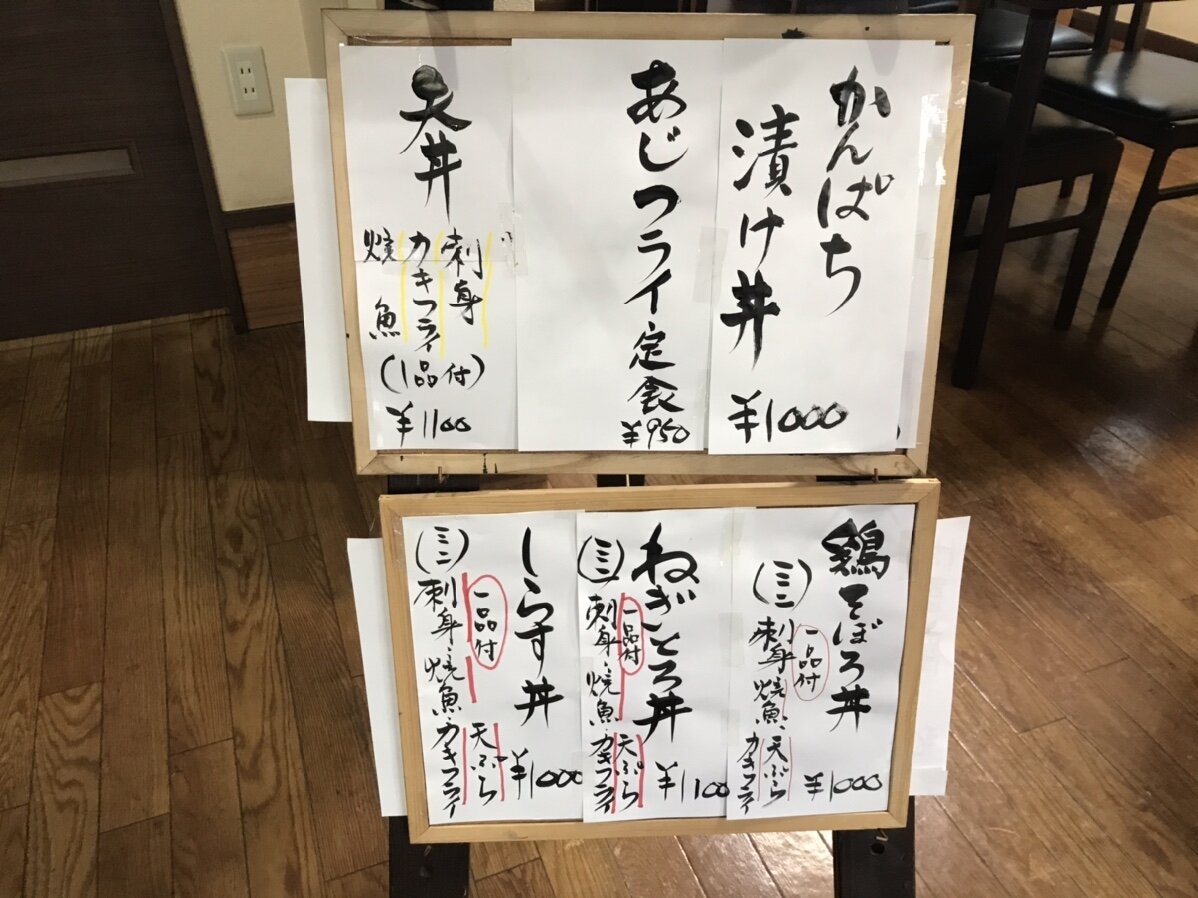 かんぱち
漬け丼
¥1000
あじフライ定食
¥950
天丼
刺身
カキフライ
焼魚
(1品付)
¥1100
鶏そぼろ丼
¥1000
(ミニ)
一品付
刺身、焼魚、カキフライ
天ぷら
ねぎとろ丼
¥1100
(ミニ)
一品付
刺身、焼魚、カキフライ
天ぷら
しらす丼
¥1000
(ミニ)
一品付
刺身、焼魚、カキフライ
天ぷら